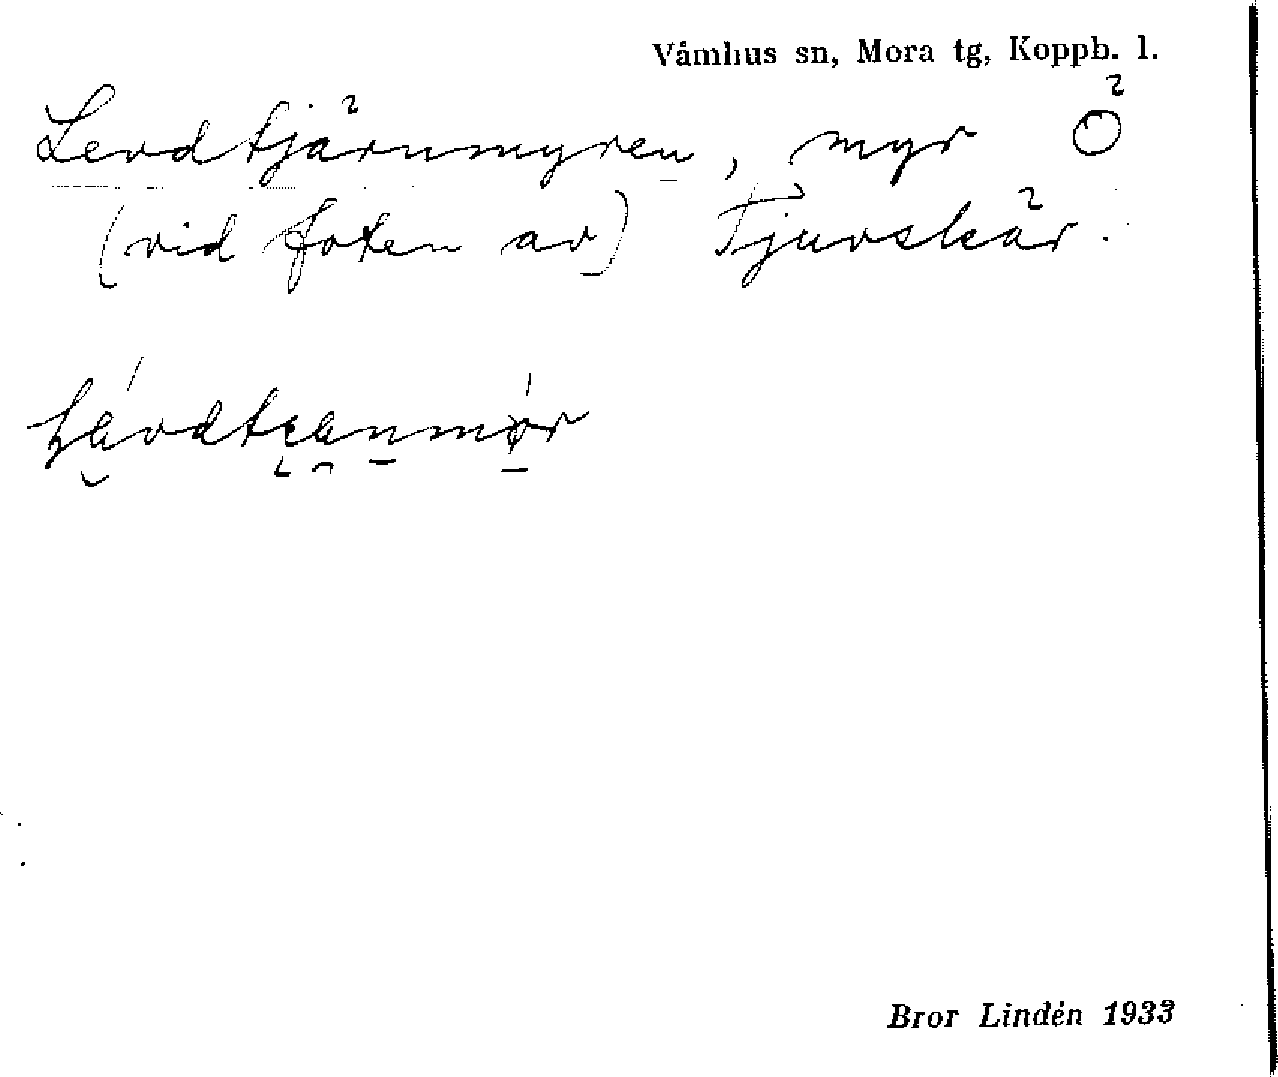 Våmhus sn, Mora tg, Koppb. l.
Levdtjärnmyren, myr Ö
(vid foten av) Tjuvskär.
Bror Lindén 1933